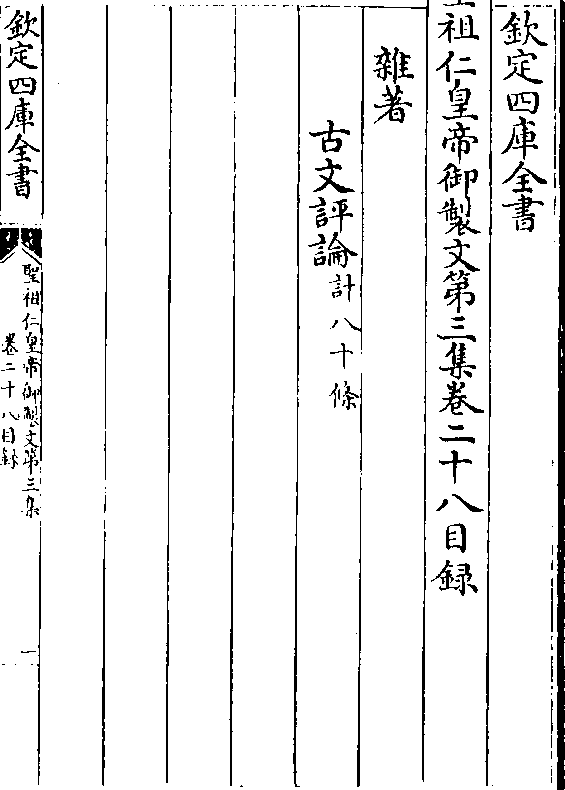 欽定四庫全書
聖祖仁皇帝御製文第三集卷二十八目録
雜著
古文評論計八十條
欽定四庫全書
聖祖仁皇帝御製文第三集
卷二十八目録
一